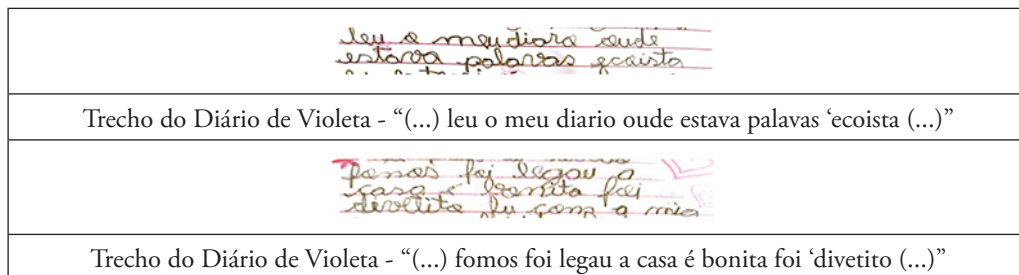 leu o meu diaro oude
estava palavas ecoista
Trecho do Diário de Violeta - “(...) leu o meu diario oude estava palavas ‘ecoista (...)”
fomos foi legau a
casa é bonita foi
a mia
Trecho do Diário de Violeta - “(...) fomos foi legau a casa é bonita foi ‘divetito (...)”